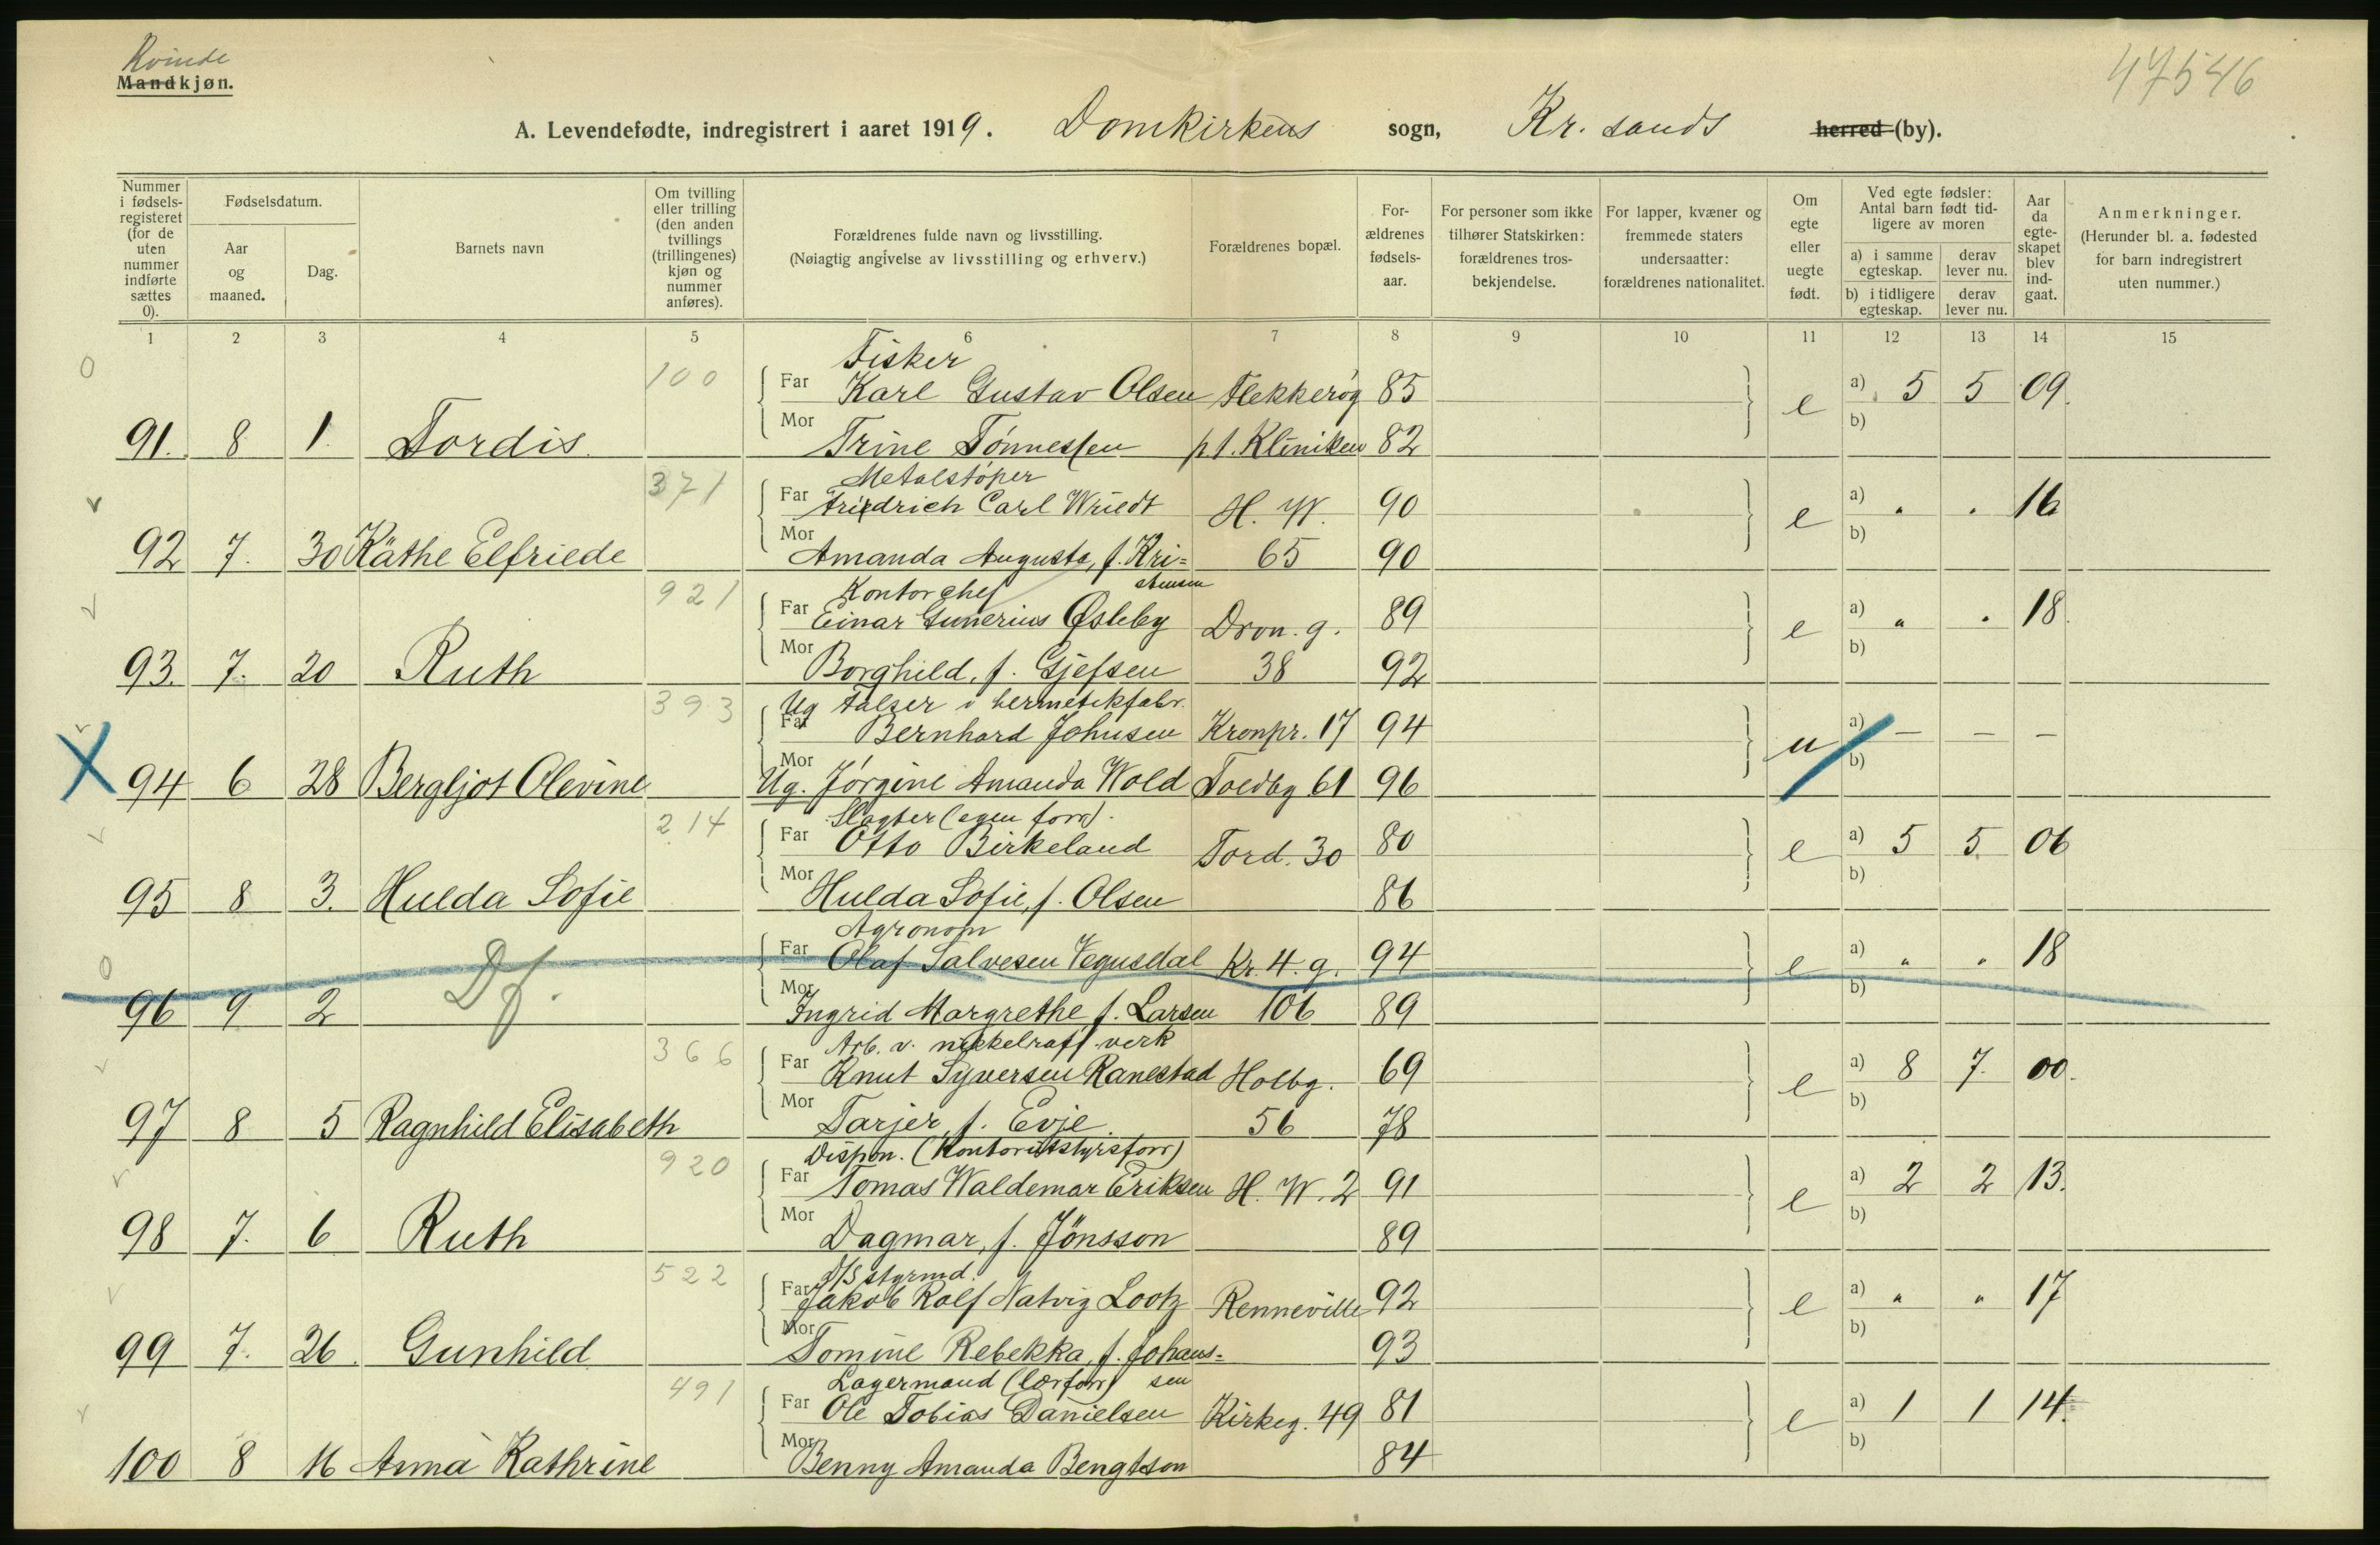 Kvinde
Mandkjøn.
47546
A. Levendefødte, indregistrert i aaret 1919. Domkirkens sogn, Kr. sands herred (by).
Nummer i fødsels-registeret (for de uten nummer indførte sættes 0).
Fødselsdatum.
Aar og maaned.
Dag.
Barnets navn
Om tvilling eller trilling (den anden tvillings (trillingenes) kjøn og nummer anføres).
Forældrenes fulde navn og livsstilling.
(Nøiagtig angivelse av livsstilling og erhverv.)
Forældrenes bopæl.
For-ældrenes fødsels-aar.
For personer som ikke tilhører Statskirken: forældrenes tros-bekjendelse.
For lapper, kvæner og fremmede staters undersaatter: forældrenes nationalitet.
Om egte eller uegte født.
Ved egte fødsler: Antal barn født tid-ligere av moren
a) i samme egteskap.
derav lever nu.
b) i tidligere egteskap.
derav lever nu.
Aar da egte-skapet blev ind-gaat.
Anmerkninger.
(Herunder bl. a. fødested for barn indregistrert uten nummer.)
1 2 3 4 5 6 7 8 9 10 11 12 13 14 15
0 100 Fisker
Far Karl Gustav Olsen Flekkerøg 85 e a) 5 5 09.
91. 8 1. Tordis Mor Trine Tønnessen p t. Kliniken 82 b)
v 371 Metalstøper
Far Friedrich Carl Wriedt H. W. 90 e a) " " 16
92 7. 30 Käthe Elfriede Mor Amanda Augusta, f. Kri= 65 90 b)
stensen
v 921 Kontorchef
Far Einar Gunerius Østeby Dron. g. 89 e a) " " 18.
93. 7. 20 Ruth Mor Borghild, f. Gjefsen 38 92 b)
v 393 Ug falser i hermetikfabr.
Far Bernhard Johnsen Kronpr. 17 94 u a) — — —
X 94 6 28 Bergljot Olevine Mor Ug. Jørgine Amanda Wold Toldbg 61 96 b)
v 214 Slagter (egen forr).
Far Otto Birkeland Tord. 30 80 e a) 5 5. 06
95 8 3. Hulda Sofie Mor Hulda Sofie, f. Olsen 86 b)
0 Agronom
Far Olaf Salvesen Vegusdal Kr. 4. g. 94 e a) " " 18
96 9 2 Df. Mor Ingrid Margrethe f. Larsen 106 89 b)
v 366 Arb. v. nikkelraff. verk
Far Knut Syversen Ranestad Holbg. 69 e a) 8 7. 00.
97 8 5 Ragnhild Elisabeth Mor Tarjer, f. Evje 56 78 b)
v 920 Dispon. (Kontorutstyrsforr)
Far Tomas Waldemar Eriksen H. W. 2 91 e a) 2 2 13.
98 7. 6 Ruth Mor Dagmar, f. Jönsson 89 b)
v 522 D/S styrmd.
Far Jakob Rolf Natvig Lootz Renneville 92 e a) " " 17
99 7. 26. Gunhild Mor Tomine Rebekka, f. Johans= 93 b)
sen
v 491 Lagermand (lærforr)
Far Ole Tobias Danielsen Kirkeg. 49 81 e a) 1 1 14.
100 8 16 Anna Kathrine Mor Benny Amanda Bengtson 84 b)